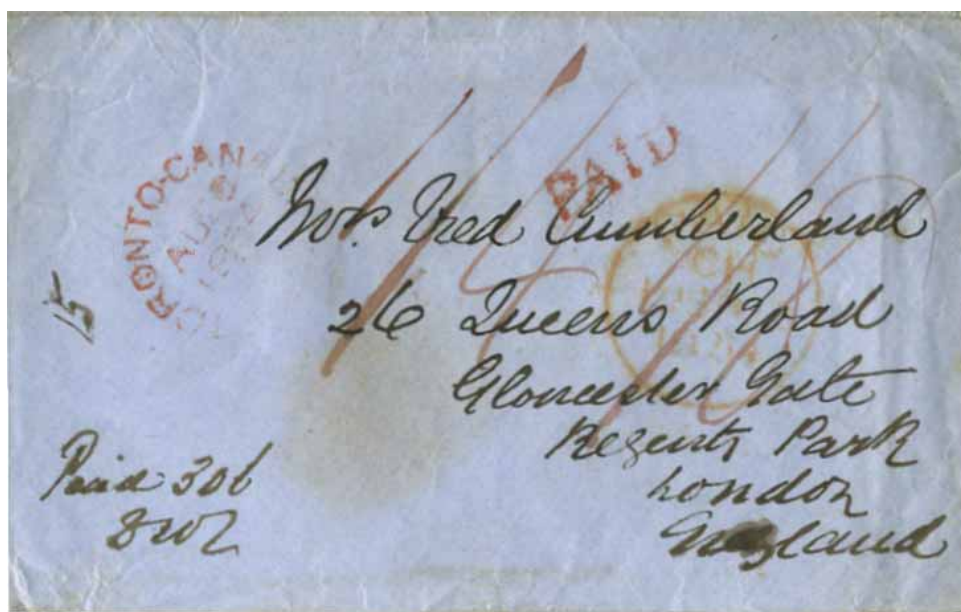 TORONTO-CANA
AU
PAID
Mrs. Fred Cumberland
26 Queens Road
Gloucester Gate
Regents Park
London
England
15
Paid 306